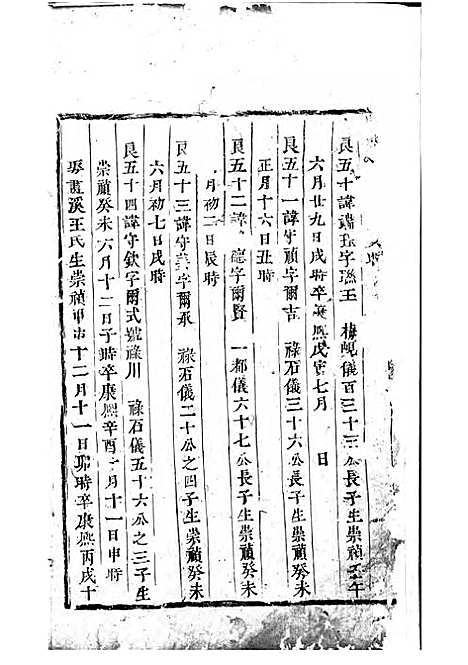 良五十諱瑞珠字聮玉 梅峴儀百三十三公長子生崇禎壬午
六月廿九日戌時卒康熙戊寅七月 日
良五十一諱守禎字爾吉 祿石儀三十六公長子生崇禎癸未
正月十六日丑時
良五十二諱 龍字爾賢 一都儀六十七公長子生崇禎癸未
月初二日辰時
良五十三諱守義字爾承 祿石儀二十公之四子生崇禎癸未
六月初七日戌時
良五十四諱守欽字爾式號祿川 祿石儀五十六公之三子生
崇禎癸未六月十二日子時卒康熙辛酉 月十一日申時
娶 溪王氏生崇禎甲申十二月十一日卯時卒康熙丙戌十